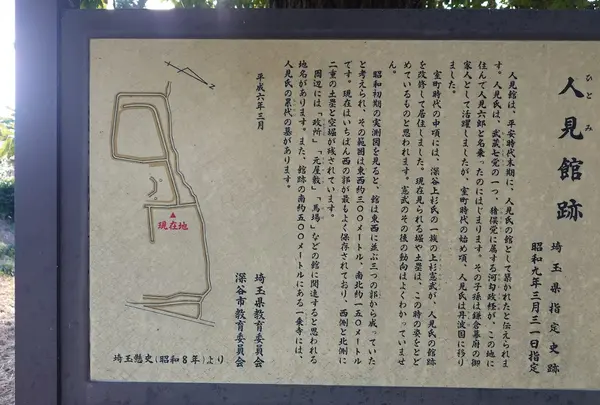 人見館跡
ひとみ
埼玉県指定史跡
昭和九年三月三一日指定
人見館は、平安時代末期に、人見氏の館として築かれたと伝えられま
す。人見氏は、武蔵七党の一つ、猪俣党に属する河匂政経が、この地に
住んで人見六郎と名乗ったのにはじまります。その子孫は鎌倉幕府の御
家人として活躍しましたが、室町時代の始め頃、人見氏は丹波国に移り
ました。
室町時代の中頃には、深谷上杉氏の一族の上杉憲武が、人見氏の館跡
を改修して居住しました。現在見られる堀や土塁は、この時の姿をとど
めているものと思われます。憲武のその後の動向はよくわかっていませ
ん。
昭和初期の実測図を見ると、館は東西に並ぶ三つの郭から成っていた
と考えられ、その範囲は東西約三〇〇メートル、南北約一五〇メートル
です。現在はいちばん西の郭が最もよく保存されており、西側と北側に
二重の土塁と空堀が残されています。
周辺には「政所」「元屋敷」「馬場」などの館に関連すると思われる
地名があります。また、館跡の南約五〇〇メートルにある一乗寺には、
人見氏の累代の墓があります。
平成六年三月
埼玉県教育委員会
深谷市教育委員会
現在地
埼玉懸史(昭和8年)より